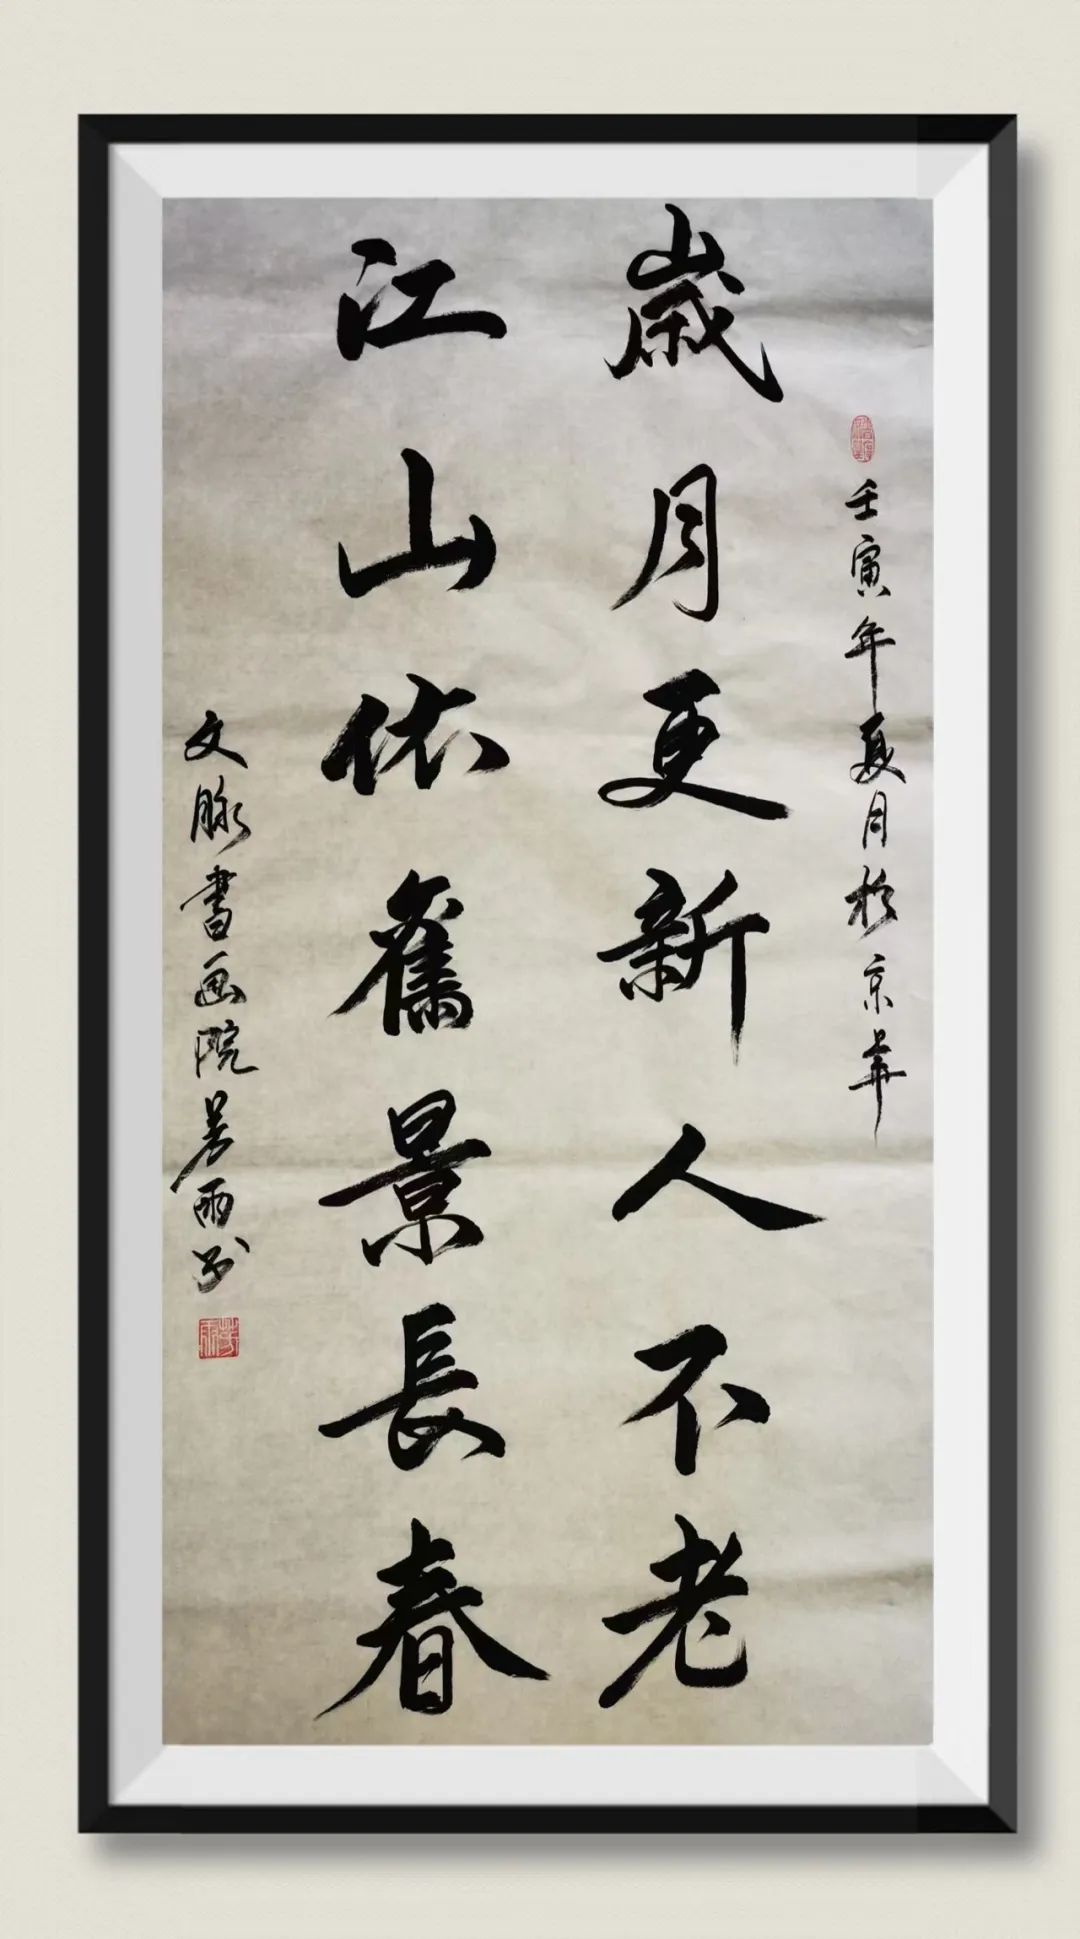 壬寅年夏月於京華
歲月更新人不老
江山依舊景長春
文脉書画院芳雨书